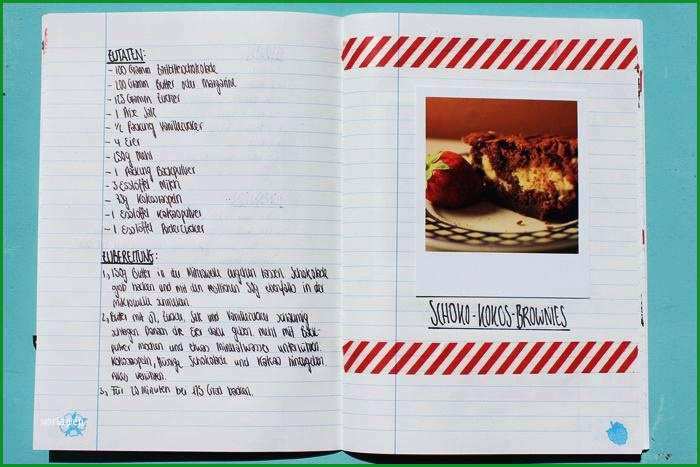 ZUTATEN:
- 100 Gramm Zartbitterschokolade
- 200 Gramm Butter oder Margarine
- 175 Gramm Zucker
- 1 Prise Salz
- 1/2 Packung Vanillezucker
- 4 Eier
- 150g Mehl
- 1 Packung Backpulver
- 3 Esslöffel Milch
- Kokosraspeln
- 1 Esslöffel Kakaopulver
- 1 Esslöffel Puderzucker
ZUBEREITUNG:
1, 150g Butter in der Mikrowelle zergehen lassen, Schokolade
grob hacken und mit den restlichen 50g ebenfalls in der
Mikrowelle schmelzen.
2, Butter mit Öl, Zucker, Salz und Vanillezucker schaumig
schlagen. Danach die Eier dazu geben, Mehl mit Back-
pulver mischen und etwas Mineralwasser unterrühren.
Kokosraspeln, flüssige Schokolade und Kakao hinzugeben.
Alles verrühren.
3, Für 20 Minuten bei 175 Grad backen.
SCHOKO-KOKOS-BROWNIES